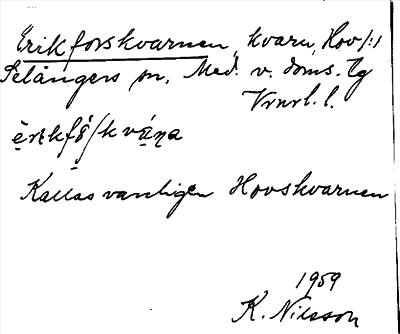 Erikforskvarnen, kvarn, Hov 1:1
Selångers sn, Med. v. doms. Tg
Kallas vanligen Hovskvarnen
1959
K. Nilsson